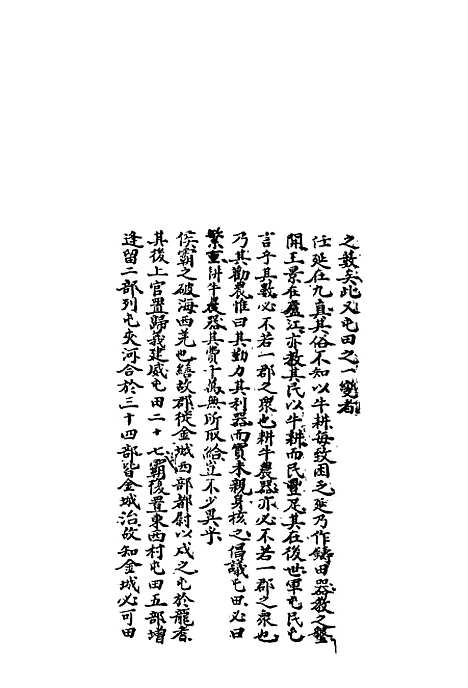 之數矣此又屯田之一變者
任延在九真其俗不知以牛耕每致困乏延乃作鑄田器教之墾
開王景在廬江亦教其民以牛耕而民豐足其在後世軍屯民屯
言乎其數必不若一郡之衆也耕牛農器亦必不若一郡之衆也
乃其勸農惟曰其勤力其利器而實未親身核之倡議屯田必曰
繁重耕牛農器其費千萬無所取給豈不少異乎
侯霸之破海西羌也繕故郡徙金城西部都尉以戍之屯於龍耆
其後上官置歸義建威屯田二十七部霸復置東西村屯田五部增
逢留二部列屯夾河合於三十四部皆金城治故知金城必可田